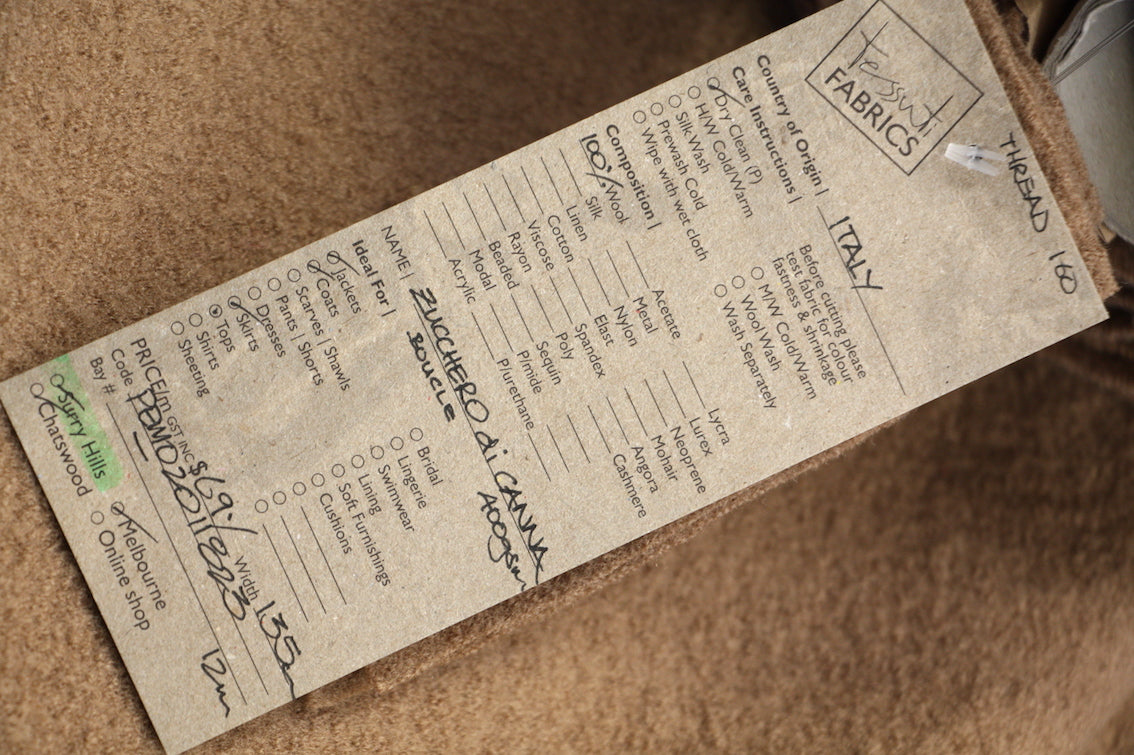 THREAD 160
tessuti
FABRICS
Country of Origin | ITALY
Care Instructions |
Dry Clean (P)
H/W Cold/Warm
Silk Wash
Prewash Cold
Wipe with wet cloth
Before cutting please
test fabric for colour
fastness & shrinkage
M/W Cold/Warm
Wool Wash
Wash Separately
Composition |
100% Wool
Silk
Linen
Cotton
Viscose
Rayon
Beaded
Modal
Acrylic
Acetate
Metal
Nylon
Elast
Spandex
Poly
Sequin
P/mide
P/urethane
Lycra
Lurex
Neoprene
Mohair
Angora
Cashmere
NAME | ZUCCHERO di CANNA
BOUCLE 400gsm
Ideal For |
Jackets
Coats
Scarves | Shawls
Pants | Shorts
Dresses
Skirts
Tops
Shirts
Sheeting
Bridal
Lingerie
Swimwear
Lining
Soft Furnishings
Cushions
PRICE/m GST INC $69.- Width 135
Code
Bay # 12m
Surry Hills
Chatswood
Melbourne
Online shop